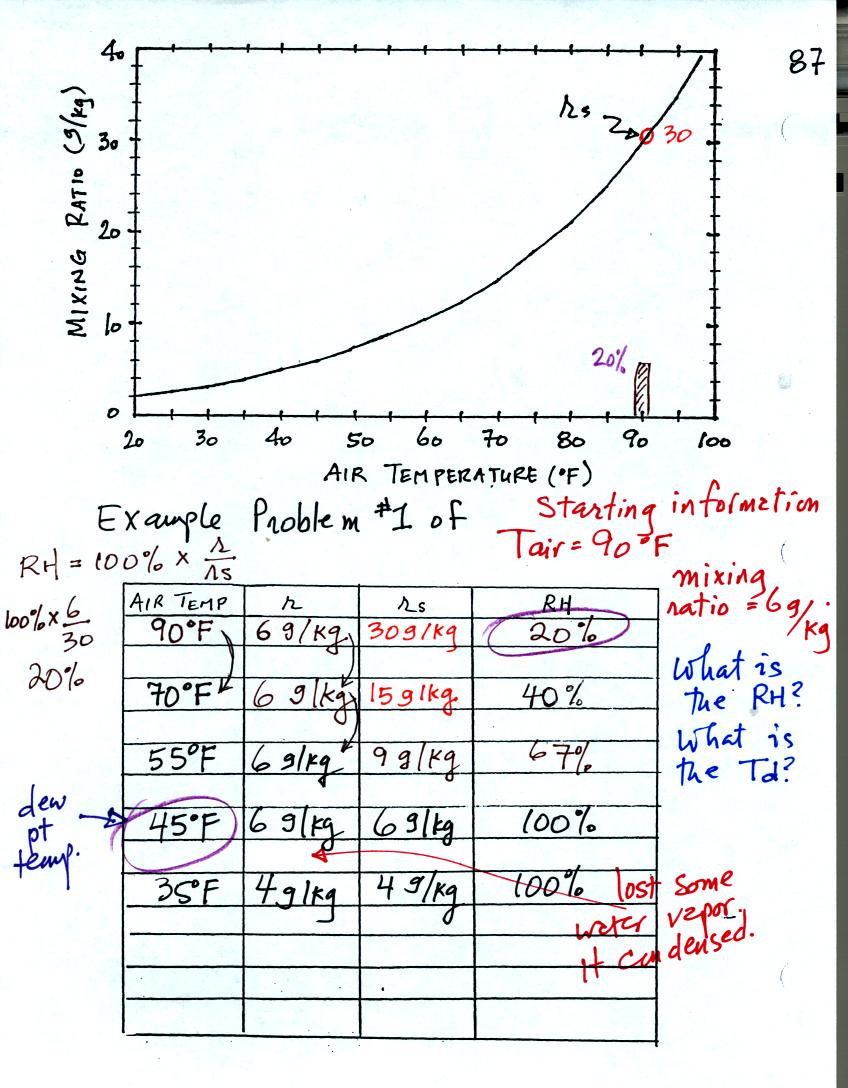 87
MIXING RATIO (g/kg)
40
30
20
10
0
rs
30
20%
20 30 40 50 60 70 80 90 100
AIR TEMPERATURE (°F)
Example Problem #1 of
Starting information
Tair = 90°F
mixing
ratio = 6 g/kg
What is
the RH?
What is
the Td?
RH = 100% × r/rs
100% × 6/30
20%
AIR TEMP r rs RH
90°F 6 g/kg 30 g/kg 20%
70°F 6 g/kg 15 g/kg 40%
55°F 6 g/kg 9 g/kg 67%
45°F 6 g/kg 6 g/kg 100%
35°F 4 g/kg 4 g/kg 100%
dew
pt
temp.
lost some
water vapor.
It condensed.